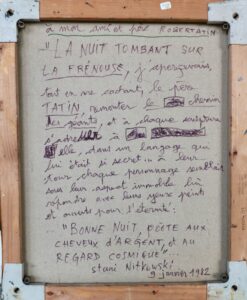 à mon ami et père ROBERTATIN
"LA NUIT TOMBANT SUR
LA FRÉNOUSE, j'aperçevais,
tout en me cachant, le père
TATIN remonter le chemin
des géants, et à chaque sculpture
s'adresser à
elle, dans un langage qui
lui était si secret... à leur
tour chaque personnage semblait
sous leur aspect immobile lui
répondre avec leurs yeux peints
et ouverts pour l'éternité:
"BONNE NUIT, POÈTE AUX
CHEVEUX D'ARGENT, et AU
REGARD COSMIQUE"
stani Nitkowski
9 janvier 1982